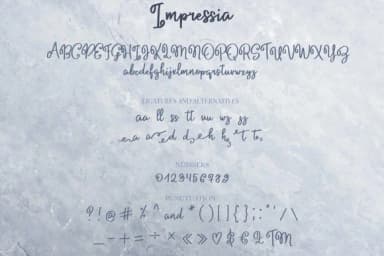 Impressia
ABCDEFGHIJKLMNOPQRSTUVWXYZ
abcdefghijklmnopqrstuvwxyz
LIGATURES AND ALTERNATIVES
aa ll ss tt uu ww zz yy
NUMBERS
0123456789
PUNCTUATION
? ! @ # % ^ and * ( ) [ ] { } ; : " ' / \
_ - + = ÷ × « » ♡ $ € £ TM